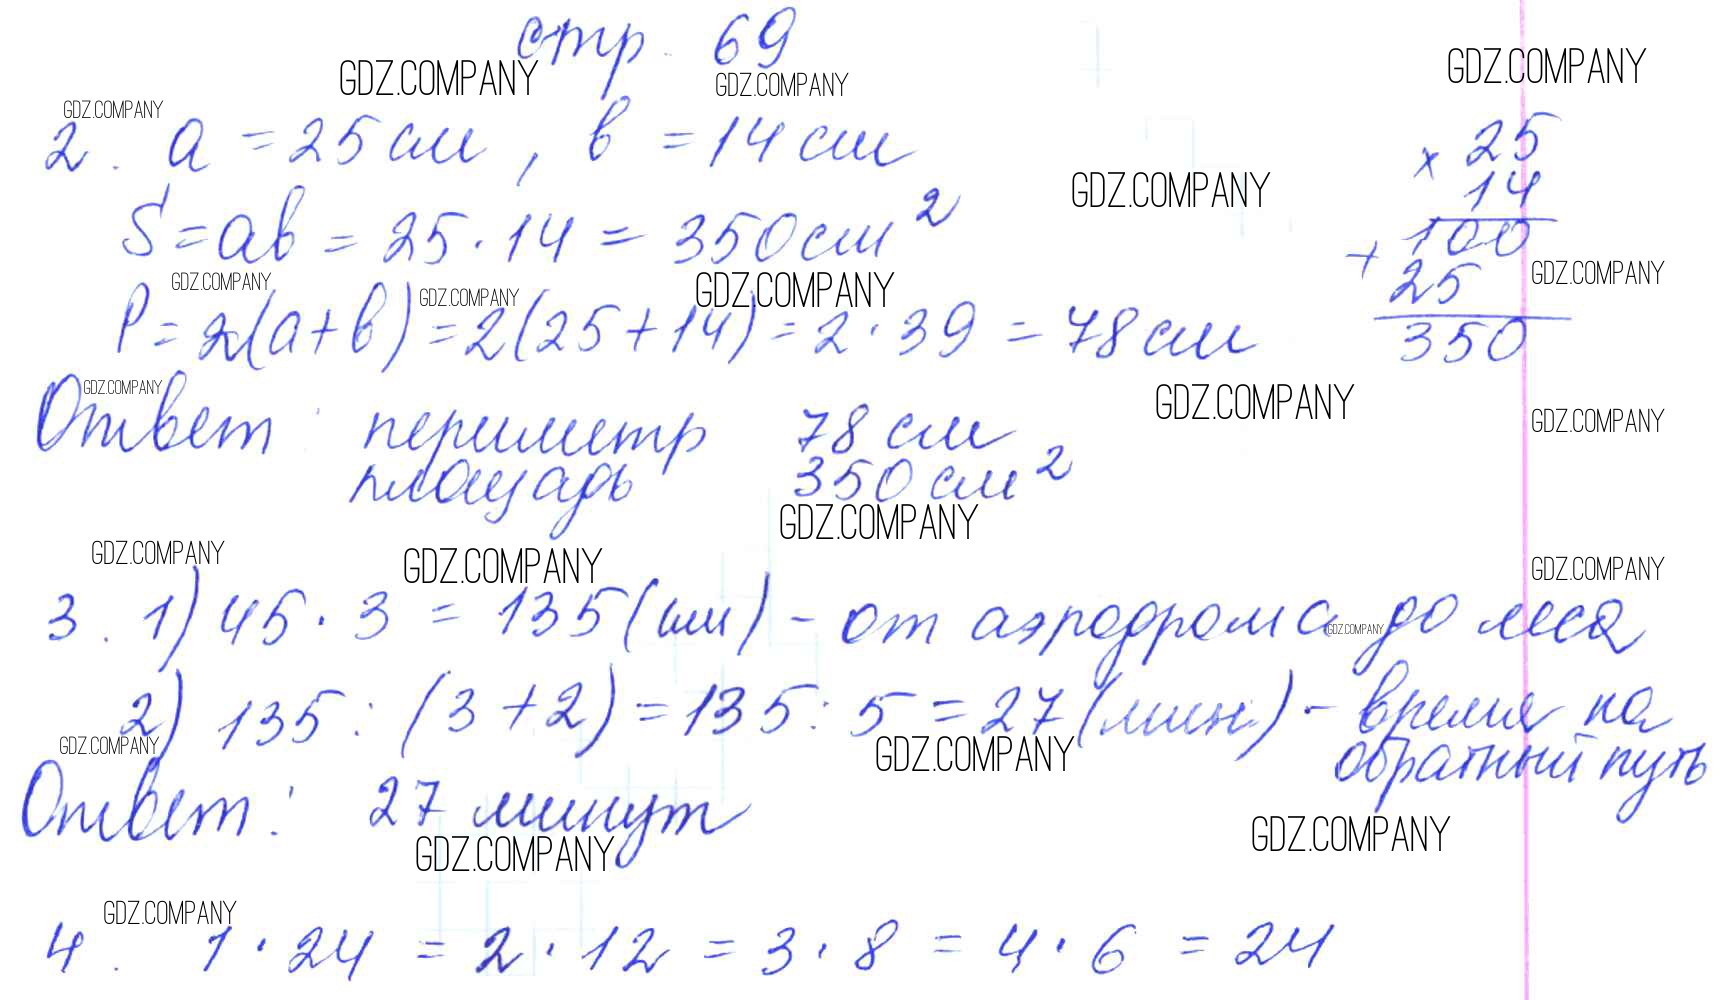 стр. 69
GDZ.COMPANY GDZ.COMPANY GDZ.COMPANY
GDZ.COMPANY
2. a = 25 см, b = 14 см
× 25
14
GDZ.COMPANY
S = ab = 25 · 14 = 350 см²
+ 100
25
350
GDZ.COMPANY GDZ.COMPANY GDZ.COMPANY GDZ.COMPANY
P = 2(a+b) = 2(25+14) = 2 · 39 = 78 см
GDZ.COMPANY GDZ.COMPANY GDZ.COMPANY
Ответ: периметр 78 см
площадь 350 см²
GDZ.COMPANY
GDZ.COMPANY GDZ.COMPANY GDZ.COMPANY
3. 1) 45 · 3 = 135 (км) - от аэродрома до леса
GDZ.COMPANY
2) 135 : (3+2) = 135 : 5 = 27 (мин.) - время на
обратный путь
GDZ.COMPANY GDZ.COMPANY
Ответ: 27 минут
GDZ.COMPANY GDZ.COMPANY
GDZ.COMPANY
4. 1 · 24 = 2 · 12 = 3 · 8 = 4 · 6 = 24